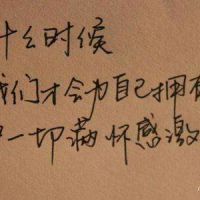 什么时候
我们才会为自己拥有
一切满怀感激